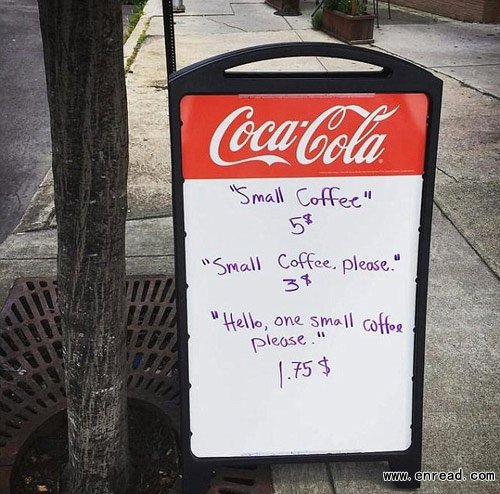 Coca-Cola
"Small Coffee"
5$
"Small Coffee, please."
3$
"Hello, one small coffee
please."
1.75 $
www.enread.com